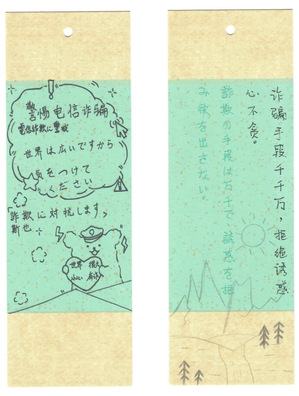 警惕电信诈骗
電信詐欺に警戒
世界は広いですから
気をつけて
ください
「詐欺に対抗します」
世界
诈骗手段千千万,拒绝诱惑
心不贪。
詐欺の手段は万千で、誘惑を拒
み欲を出さない。